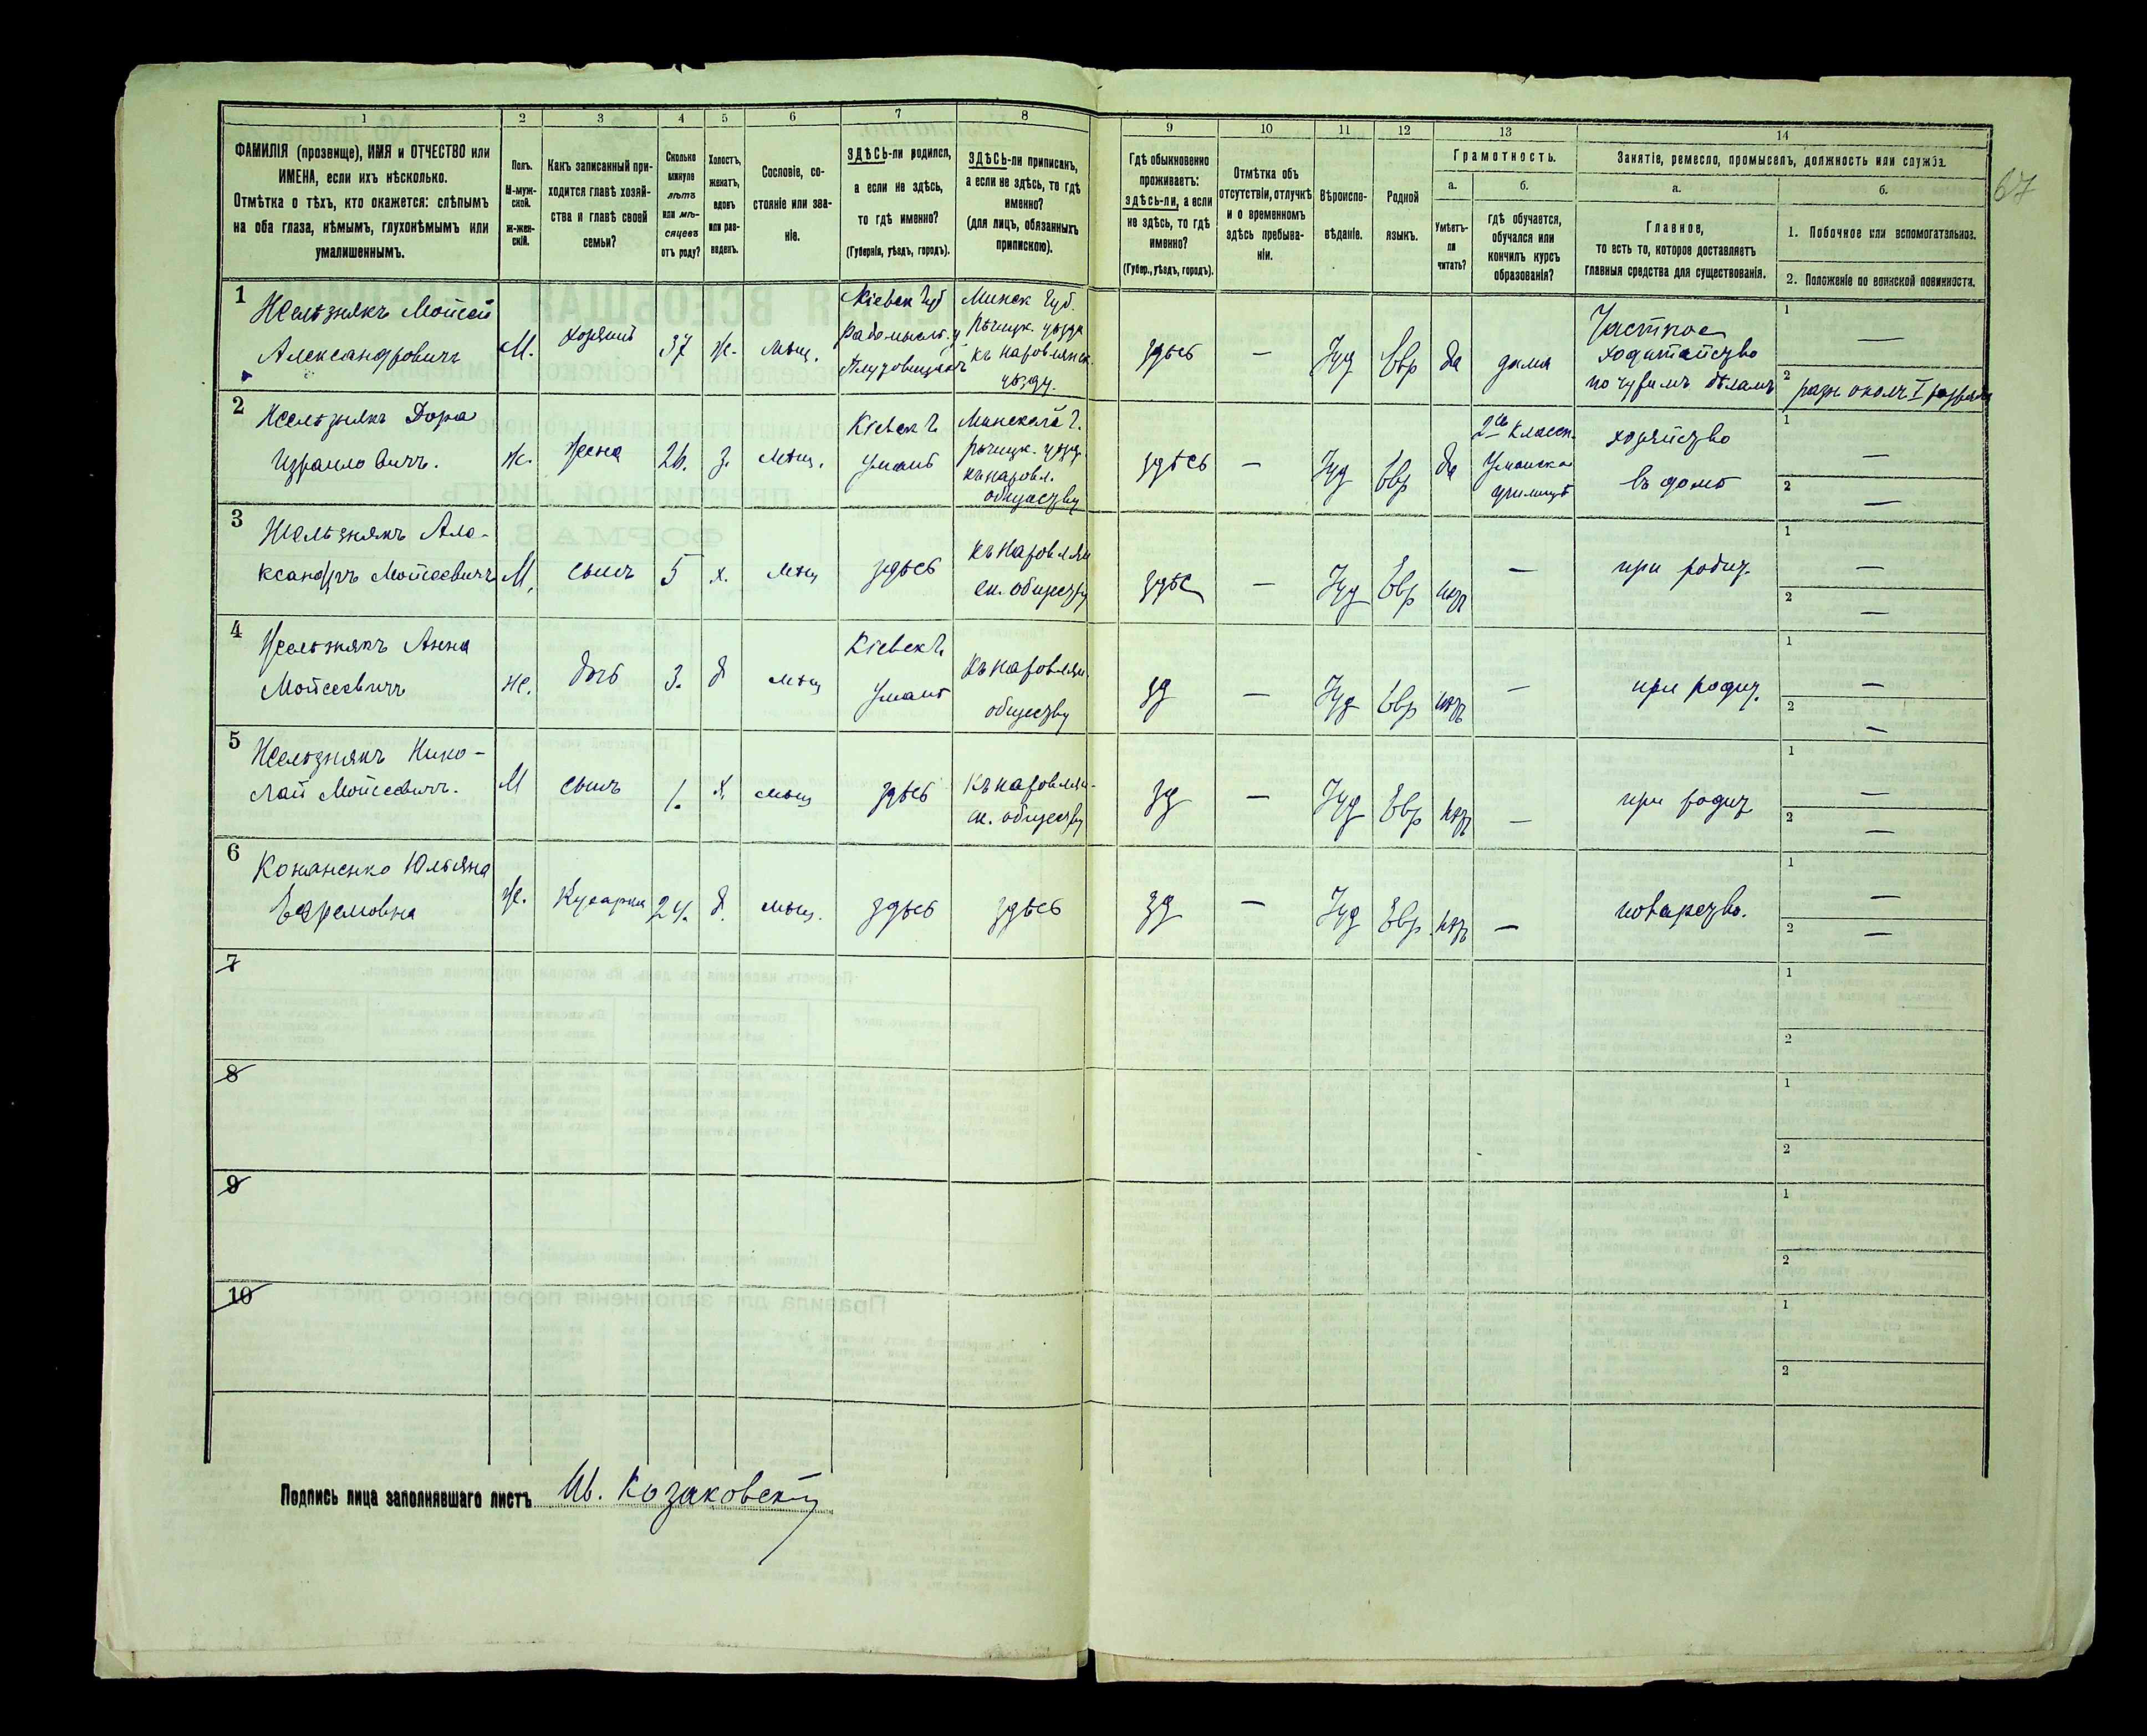 1 2 3 4 5 6 7 8 9 10 11 12 13 14
ФАМИЛІЯ (прозвище), ИМЯ и ОТЧЕСТВО или
ИМЕНА, если ихъ нѣсколько.
Отмѣтка о тѣхъ, кто окажется: слѣпымъ
на оба глаза, нѣмымъ, глухонѣмымъ или
умалишеннымъ.
Полъ.
М-муж-
ской.
Ж-жен-
скій.
Какъ записанный при-
ходится главѣ хозяй-
ства и главѣ своей
семьи?
Сколько
минуло
лѣтъ
или мѣ-
сяцевъ
отъ роду?
Холостъ,
женатъ,
вдовъ
или раз-
веденъ.
Сословіе, со-
стояніе или зва-
ніе.
ЗДѢСЬ-ли родился,
а если не здѣсь,
то гдѣ именно?
(Губернія, уѣздъ, городъ).
ЗДѢСЬ-ли приписанъ,
а если не здѣсь, то гдѣ
именно?
(для лицъ, обязанныхъ
припискою).
Гдѣ обыкновенно
проживаетъ:
здѣсь-ли, а если
не здѣсь, то гдѣ
именно?
(Губер., уѣздъ, городъ).
Отмѣтка объ
отсутствіи, отлучкѣ
и о временномъ
здѣсь пребыва-
ніи.
Вѣроиспо-
вѣданіе.
Родной
языкъ.
Грамотность.
а.
Умѣетъ-
ли
читать?
б.
гдѣ обучается,
обучался или
кончилъ курсъ
образованія?
Занятіе, ремесло, промыселъ, должность или служба.
а.
Главное,
то есть то, которое доставляетъ
главныя средства для существованія.
б.
1. Побочное или вспомогательное.
2. Положеніе по воинской повинности.
67
1
Желѣзнякъ Мойсей
Александровичъ
М.
хозяинъ
37
ж.
мѣщ.
Кіевск губ
Радомысл. у
Минск губ.
Рѣчицк. уѣзда
къ наровлянск.
здѣсь
—
Іуд
Евр
да
дома
Частное
ходатайство
по чужимъ дѣламъ
1
—
2
2
Желѣзнякъ Дора
Израиловичъ.
ж.
жена
26.
з.
мѣщ.
Кіевск г.
Умань
Минской г.
Рѣчицк. уѣзд.
къ наровл.
обществу
здѣсь
—
Іуд
Евр
да
2хъ классн.
Уманское
училище
хозяйство
въ домѣ
1
—
2
—
3
Желѣзнякъ Але-
ксандръ Мойсеевичъ
М.
сынъ
5
х.
мѣщ
здѣсь
къ Наровлян
ск. обществу
здѣс
—
Іуд
Евр
нѣтъ
—
при родит.
1
—
2
—
4
Желѣзнякъ Анна
Мойсеевичъ
ж.
дочь
3.
д
мѣщ
Кіевск г.
Умань
къ наровлян.
обществу
зд
—
Іуд
Евр
нѣтъ
—
при родит.
1
—
2
—
5
Желѣзнякъ Нико-
лай Мойсеевичъ.
М
сынъ
1.
х.
мѣщ
здѣсь
къ наровлян-
ск. обществу
зд
—
Іуд
Евр
нѣтъ
—
при родит
1
—
2
—
6
Кожаненко Юльяна
Ефремовна
ж.
Кухарка
24.
д.
мѣщ.
здѣсь
здѣсь
зд
—
Іуд
Евр
нѣтъ
—
поварство.
1
—
2
—
7
1
2
8
1
2
9
1
2
10
1
2
Подпись лица заполнявшаго листъ Ив. Козаковскій